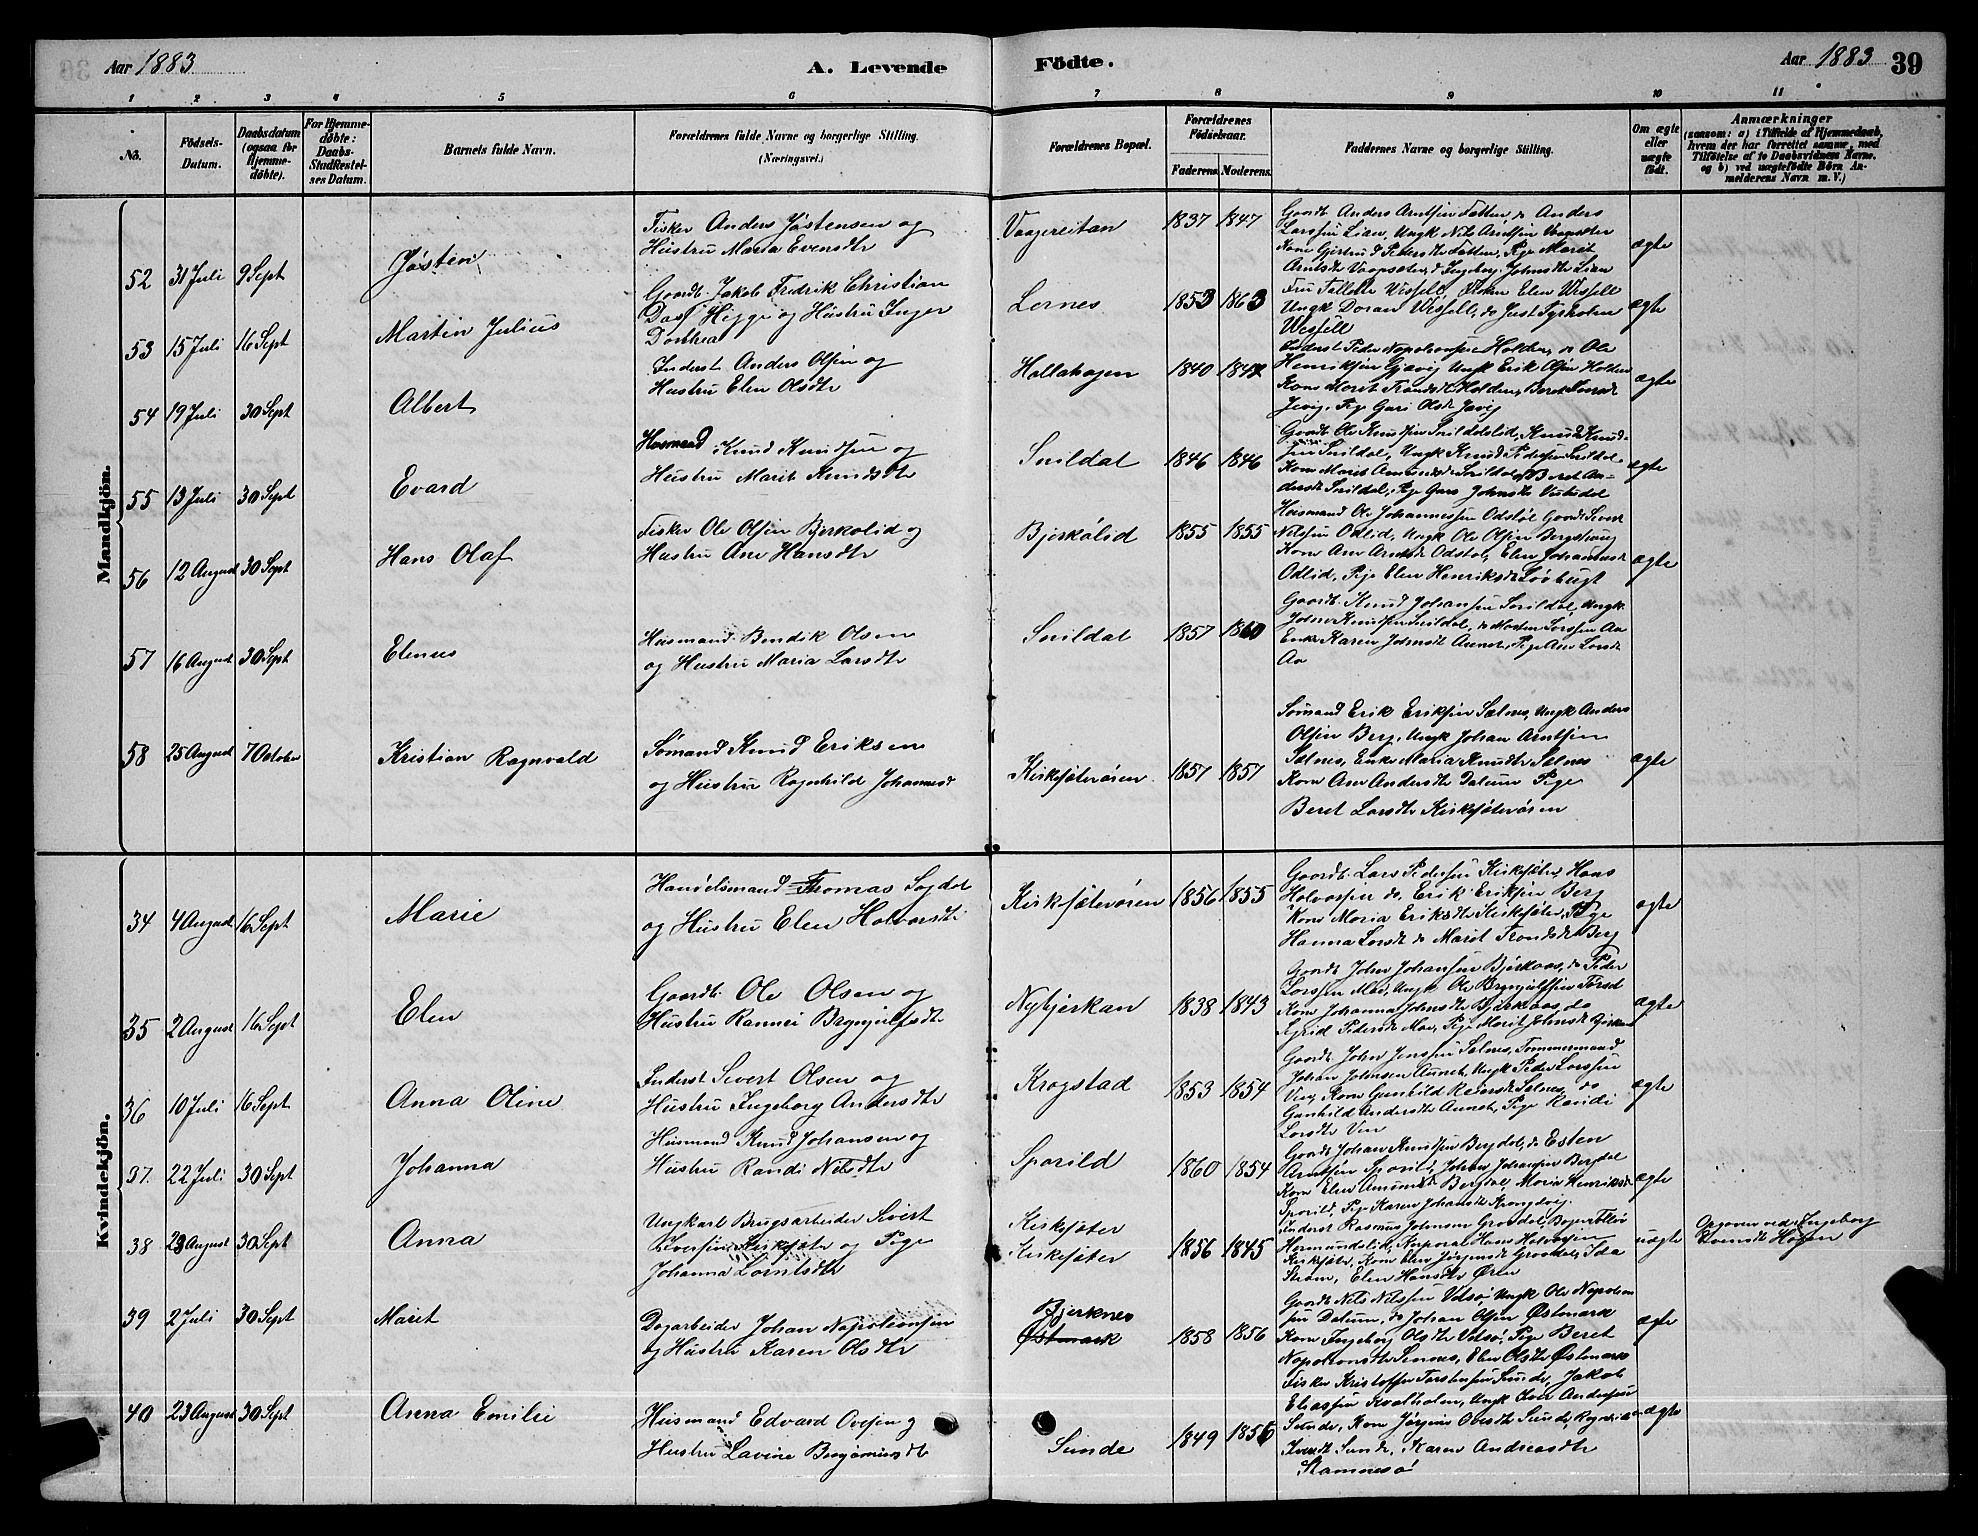 Aar 1883
A. Levende
Födte.
Aar 1883
39
1 2 3 4 5 6 7 8 9 10 11
No.
Födsels-
Datum.
Daabsdatum
(ogsaa for
Hjemme-
döbte).
For Hjemme-
döbte:
Daabs-
Stadfæstel-
ses Datum.
Barnets fulde Navn.
Forældrenes fulde Navne og borgerlige Stilling.
(Næringsvei.)
Forældrenes Bopæl.
Forældrenes
Födselsaar.
Faderens. Moderens.
Faddernes Navne og borgerlige Stilling.
Om ægte
eller
uægte
födt.
Anmærkninger
(saasom: a) i Tilfælde af Hjemmedaab,
hvem der har forrettet samme, med
Tilföielse af to Daabsvidners Navne.
og b) ved uægtefödte Börn An-
melderens Navn m. V.)
Mandkjön.
52 31 Juli 9 Sept
Jøsten
Fisker Anders Jøstensen og
Hustru Marta Evensdtr
Vaagereitan
1837 1847
Gaardb. Anders Arntsen Fætten, do Anders
Larssen Lian, Ungk Nils Arntsen
Kone Gjertrud Pedersdtr Fætten, Pige Marit
Arntsdtr Ingeborg Johnsdtr Lian
ægte
53 15 Juli 16 Sept
Martin Julius
Gaardb. Jakob Fredrik Christian
Dass Higge og Hustru Inger
Dorthea
Lernes
1853 1863
Fru Wessell, Frøken Elen Wessell
Ungk Doran Wessell, do Just Tyrholm
Wessell
ægte
54 19 Juli 30 Sept
Albert
Inderst Anders Olsen og
Hustru Elen Olsdtr
Hollahagen
1840 184
Inderst Peder Napoleonsen Holden, do Ole
Henriksen Gjævig Ungk Erik Olsen Holden
Kone Marit Trondsdtr Holden, Beret
Pige Guri Olsdtr
ægte
55 13 Juli 30 Sept
Evard
Husmand Knud Knudsen og
Hustru Marit Knudsdtr
Snildal
1846 1846
Gaardb Ole Knudsen Snildalslid, Knud Knud-
sen Snildal, Ungk Knud Pedersen Snildal
Kone Marit Snildal, Beret An-
dersdtr Snildal, Pige Guri Johnsdtr
ægte
56 12 August 30 Sept
Hans Olaf
Fisker Ole Olsen Bjerkølid og
Hustru Ane Hansdtr
Bjerkølid
1855 1855
Husmand Ole Johannessen Odstøl Gaardb
Nilssen Odlid, Ungk Ole Olsen
Kone Ane Odstøl, Elen Johannesdtr
Odlid, Pige Elen Henriksdtr Løvbugt
ægte
57 16 August 30 Sept
Elenus
Husmand Bendik Olsen
og Hustru Maria Larsdtr
Snildal
1857 1860
Gaardb. Knud Johansen Snildal, Ungk
John Knudsen Snildal, do Morten Larssen Aa
Enke Karen Johnsdtr Aunet, Pige Ane Larsdtr
Aa
58 25 August 7 October
Kristian Ragnvald
Sømand Knud Eriksen
og Hustru Ragnhild Johannesdt
Kirksæterøren
1857 1857
Sømand Erik Eriksen Salnes, Ungk Anders
Olsen Berg, Ungk Johan Arntsen
Salnes, Enke Maria Knudsdtr Salnes
Kone Ane Andersdtr Dalum Pige
Beret Larsdtr Kirksæterøren
ægte
Kvindekjön.
34 4 August 16 Sept
Marie
Handelsmand Thomas Sogdal
og Hustru Elen Halvorsdt
Kirksæterøren
1856 1855
Gaardb Lars Pedersen Kirksæter, Hans
Halvorsen do, Erik Eriksen Berg
Kone Maria Eriksdtr Kirksæter, Pige
Hanna Larsdt do Marit Trondsdtr Berg
ægte
35 2 August 16 Sept
Elen
Gaardb. Ole Olsen og
Hustru Rannei Brynjulfsdtr
Nybjerkan
1838 1843
Gaardb John Johansen Bjerkaas, do Peder
Larssen Moe, Ungk Ole Brynjulfsen
Kone Johanna Johnsdtr Bjerkaas, do
Sigrid Pedersdtr Moe, Pige Marit Johnsdtr
ægte
36 10 Juli 16 Sept
Anna Oline
Inderst Sivert Olsen og
Hustru Ingeborg Andersdtr
Krogstad
1853 1854
Gaardb. John Jenssen Salnes, Tømmermand
Johan Johnsen Aunet, Ungk Peder Larssen
Vin, Kone Gunhild Salnes, do
Gunhild Andersdtr Aunet, Pige Randi
Larsdtr Vin
ægte
37. 22 Juli 30 Sept
Johanna
Husmand Knud Johansen og
Hustru Randi Nilsdtr
Sporild
1860 1854
Gaardb Johan Knudsen Bergdal, do Esten
Arntsen Sporild, Johan Johansen Bergdal
Kone Elen Amundsdtr Bergdal, Maria Henriksdt
Sporild, Pige Karen Johansdtr
ægte
38 28 August 30 Sept
Anna
Ungkarl Brugsarbeider Sivert
Iversen Kirksæter og Pige
Johanna Lorntsdtr
Kirksæter
Kirksæter
1856 1845
Inderst Rasmus Johnsen Grøndal,
Hermundslid, Korporal Hans Halvorsen
Kirksæter, Kone Elen Jørgensdt Grøndal, Ida
Strøm, Elen Hansdtr Øren
uægte
Opgiven ved: Ingeborg
Hagen
39 2 Juli 30 Sept
Marit
Dagarbeider Johan Napoleonsen
og Hustru Karen Olsdtr
Bjerknes
Østmark
1858 1856
Gaardb Nils Nilssen Vitsø, Ungk Ole Napoleon
sen Dalum, do Johan Olsen Østmark
Kone Ingeborg Olsdtr Vitsø, Pige Beret
Napoleonsdtr Elen Olsdtr Østmark
ægte
40 23 August 30 Sept
Anna Emilie
Husmand Edvard Ovesen og
Hustru Lavine Benjaminsdt
Sunde
1849 1856
Fisker Kristoffer Torstensen Sunde, Jakob
Eliassen Kvalholm, Ungk Andersen
Sunde, Kone Jørgine Olsdtr Sunde,
Sunde, Karen Andreasdtr
Stamnesø
ægte